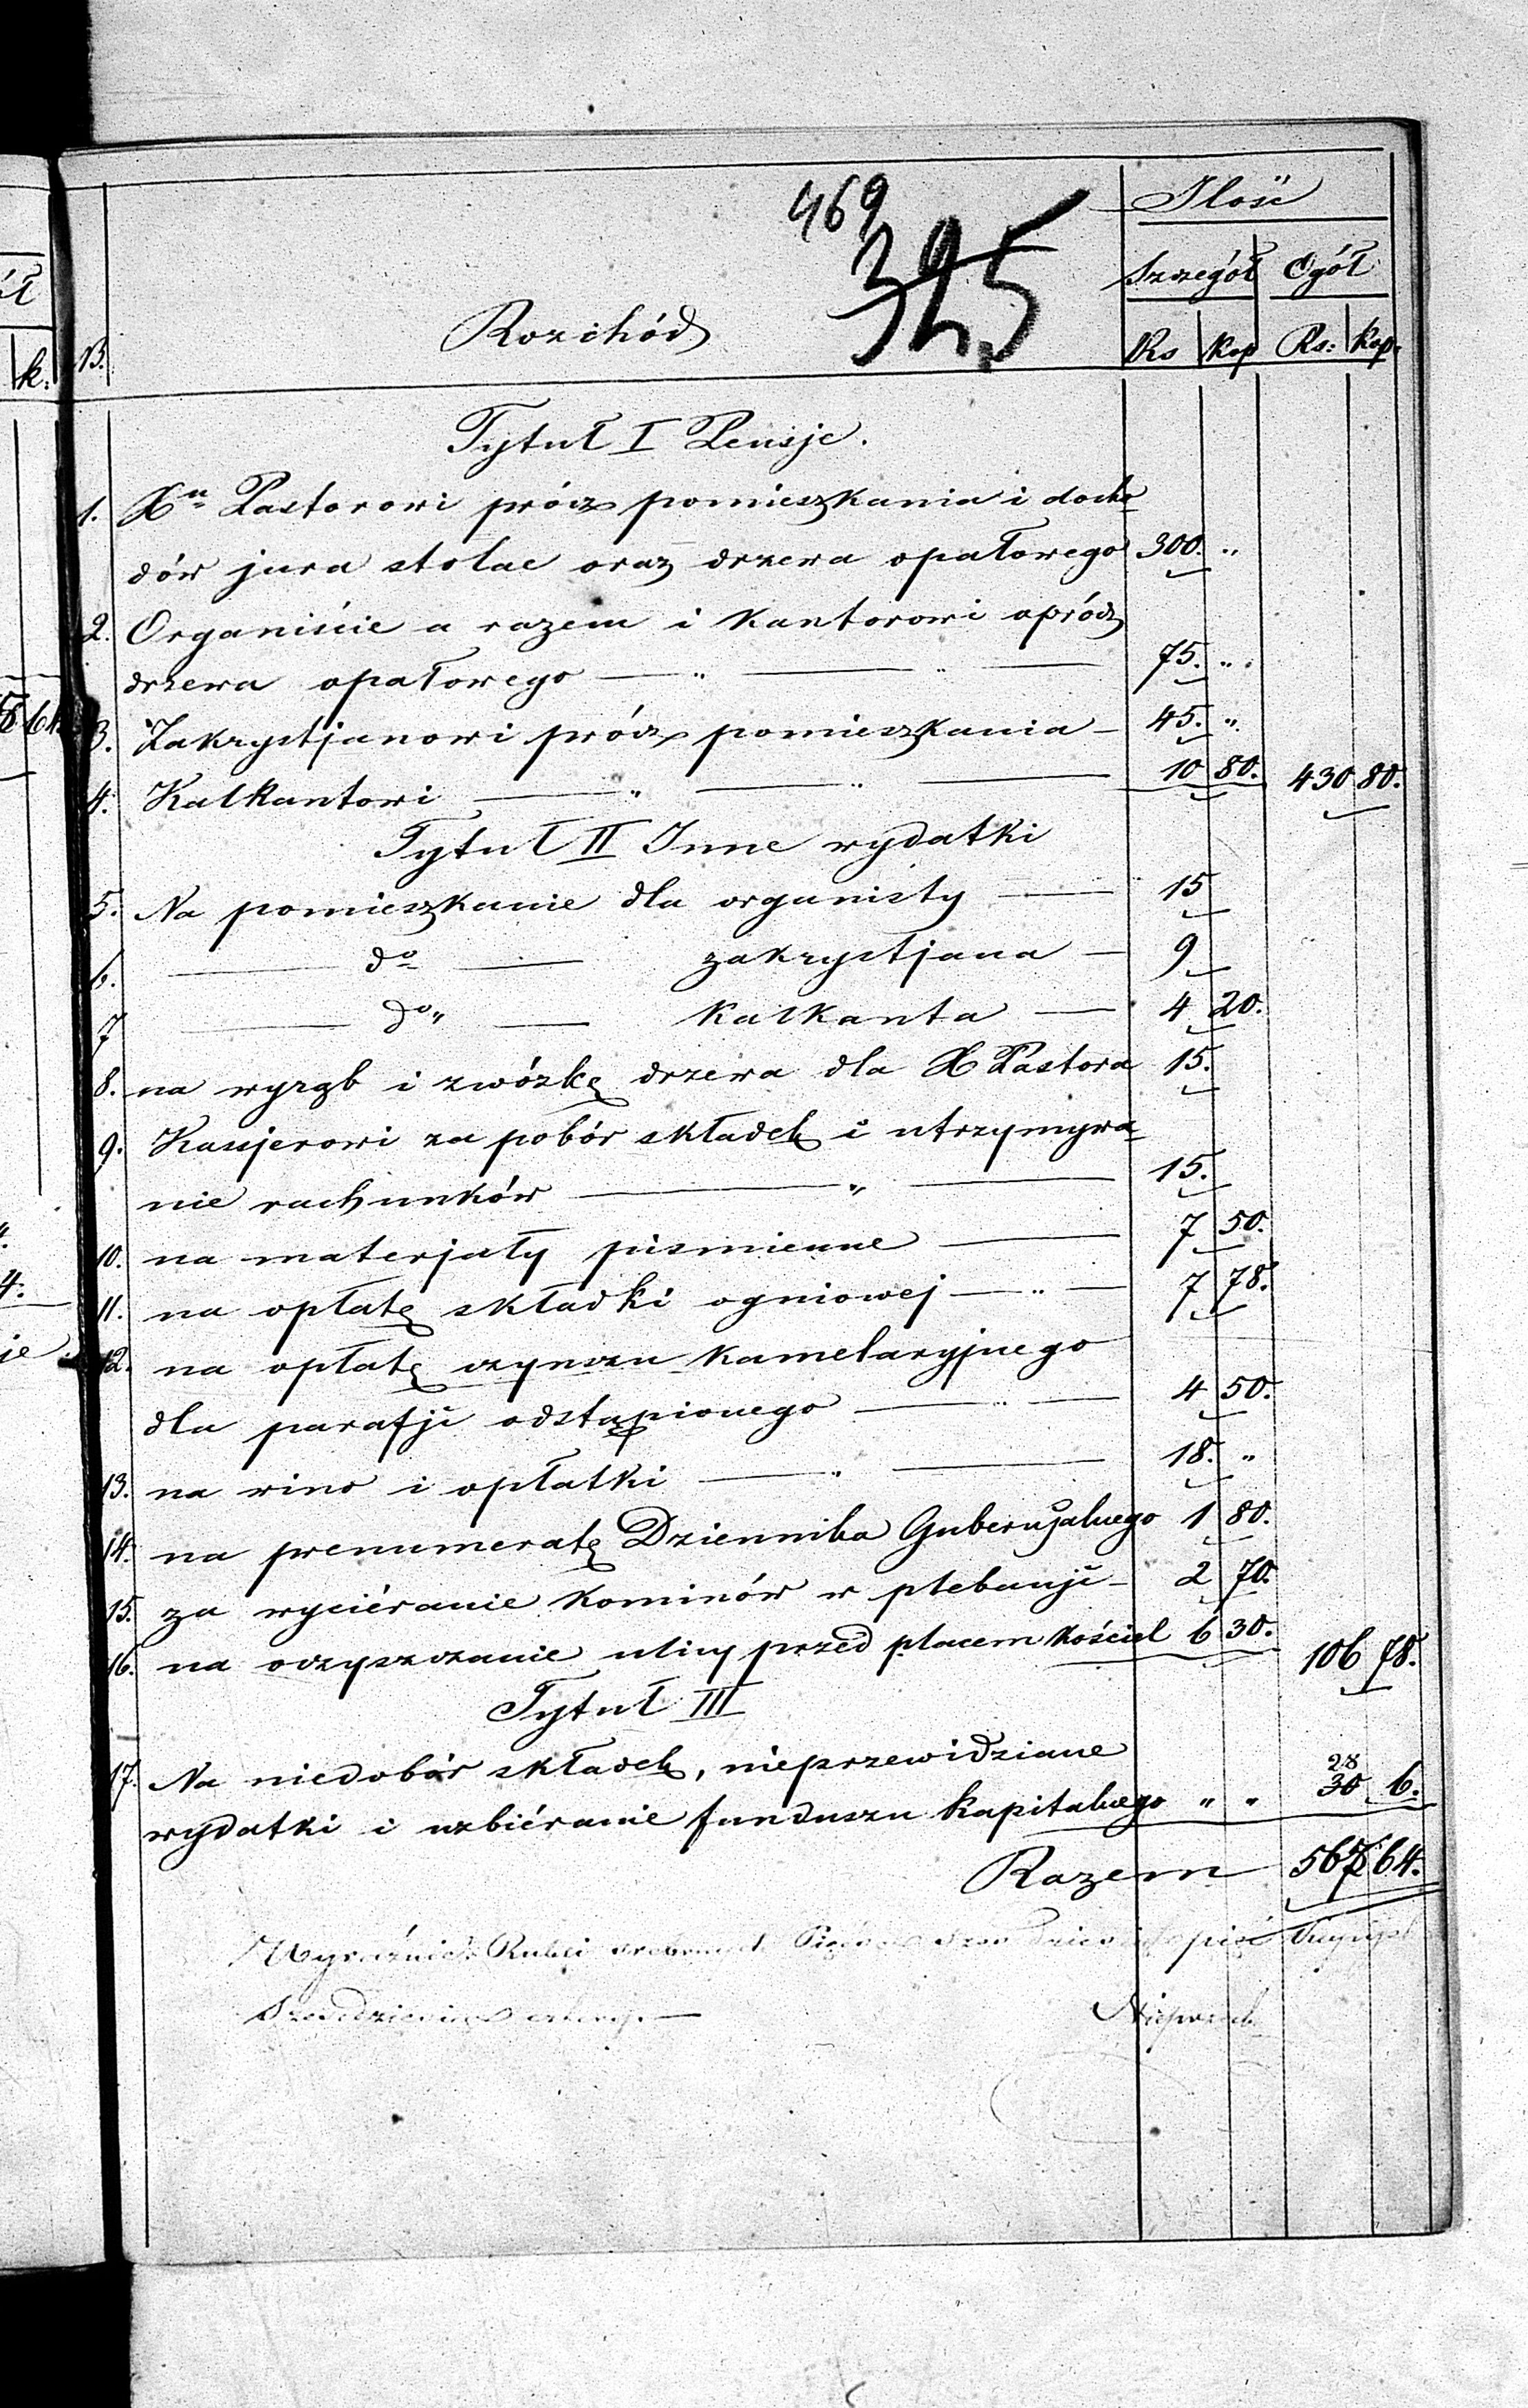 469
395
Ilość
Szczegół Ogół
N. Rozchód Rs kop Rs: kop.
Tytuł I Pensje.
1. Xu Pastorowi prócz pomieszkania i docho
dów jura stolae oraz drzewa opałowego 300. "
2. Organiście a razem i Kantorowi oprócz
drzewa opałowego — " — " — 75. "
3. Zakrystjanowi prócz pomieszkania — 45. "
4. Kalkantowi — " — " — 10 80. 430 80.
Tytuł II Inne wydatki
5. Na pomieszkanie dla organisty — 15
6. — do — zakrystjana — 9
7 — do " — Kalkanta — 4 20.
8. na wyrąb i zwózkę drzewa dla X Pastora 15.
9. Kassjerowi za pobór składek i utrzymywa
nie rachunków — " — 15.
10. na materjały piśmienne — 7 50.
11. na opłatę składki ogniowej — " — 7 78.
12. na opłatę czynszu kamelaryjnego
dla parafji odstąpionego — " — 4 50.
13. na wino i opłatki — " — 18. "
14. na prenumeratę Dziennika Gubernjalnego 1 80.
15. za wyciéranie kominów w plebanji — 2 70.
16. na oczyszczanie ulicy przed placem kościel 6 30. 106 78.
Tytuł III
17. Na niedobór składek, nieprzewidziane 28
wydatki i uzbiéranie funduszu kapitalnego " " 30 6.
Razem 64.
Wyraźnie Rubli